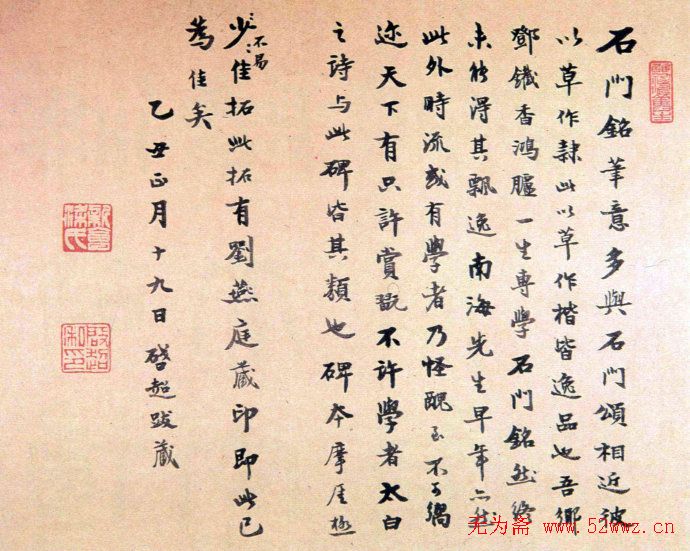 石門銘筆意多與石門頌相近彼
以草作隸此以草作楷皆逸品也吾鄉
鄧鐵香鴻臚一生專學石門銘然終
未能得其飄逸南海先生早年亦然
此外時流或有學者乃怪醜至不可嚮
迩天下有只許賞翫不許學者太白
之詩與此碑皆其類也碑本摩厓極
少佳拓此拓有劉燕庭藏印即此已
不易
為佳矣
乙丑正月十九日啓超跋藏
新會梁氏
啟超私印
无为斋 www.52wwz.cn